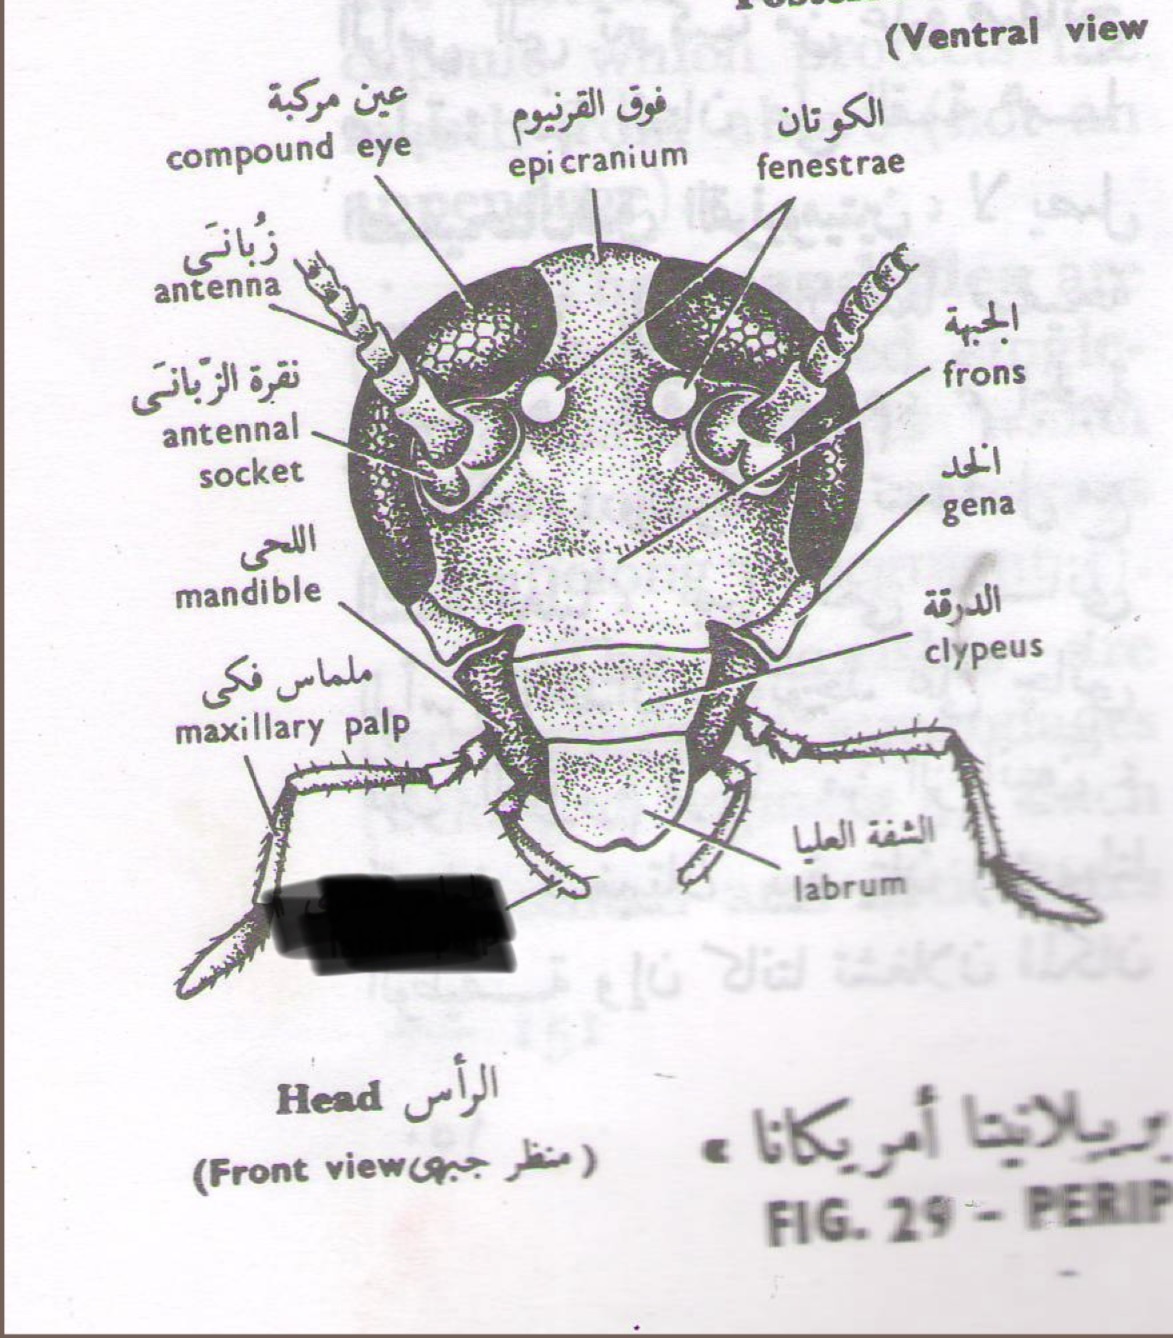 (Ventral view
عين مركبة
compound eye
فوق القرنيوم
epicranium
الكوتان
fenestrae
زُبانَى
antenna
الجبهة
frons
نقرة الزّبانَى
antennal
socket
الخد
gena
اللحى
mandible
الدرقة
clypeus
ملماس فكى
maxillary palp
الشفة العليا
labrum
Head الرأس
(Front view منظر جبهى)
أمريكانا »
FIG. 29 - PERIP